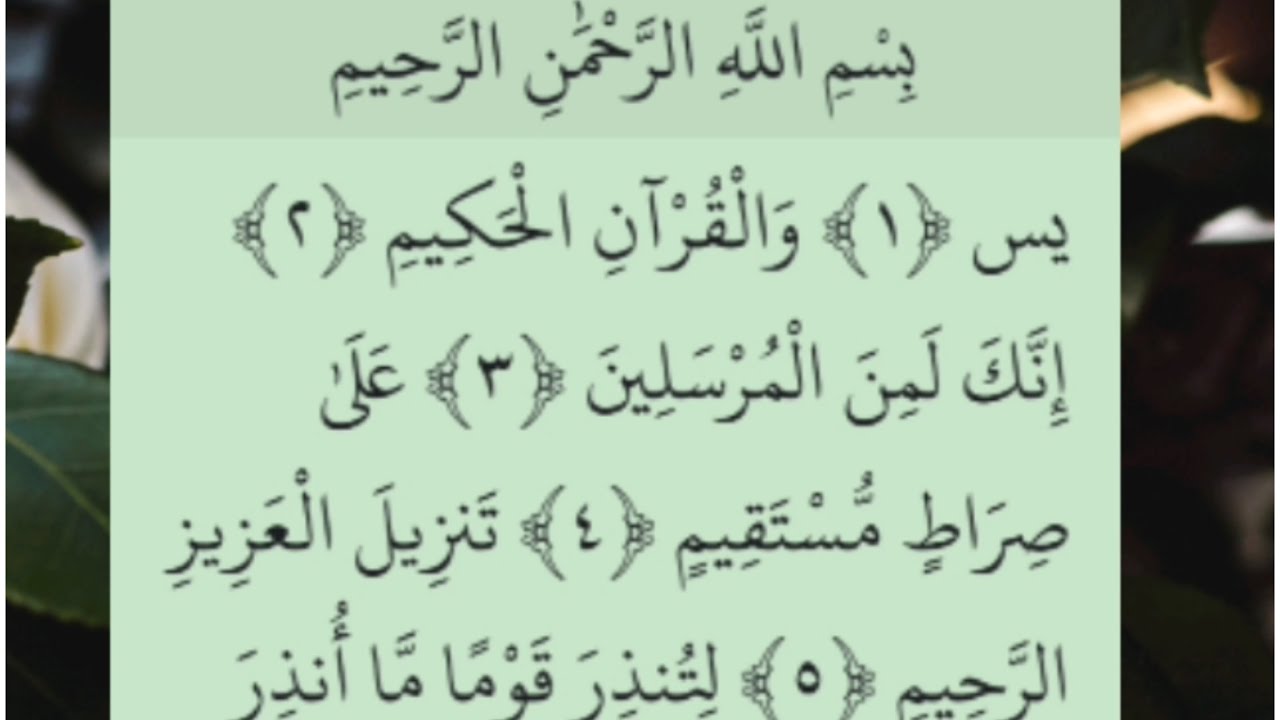 بِسْمِ اللَّهِ الرَّحْمَٰنِ الرَّحِيمِ
يس ﴿١﴾ وَالْقُرْآنِ الْحَكِيمِ ﴿٢﴾
إِنَّكَ لَمِنَ الْمُرْسَلِينَ ﴿٣﴾ عَلَىٰ
صِرَاطٍ مُّسْتَقِيمٍ ﴿٤﴾ تَنزِيلَ الْعَزِيزِ
الرَّحِيمِ ﴿٥﴾ لِتُنذِرَ قَوْمًا مَّا أُنذِرَ